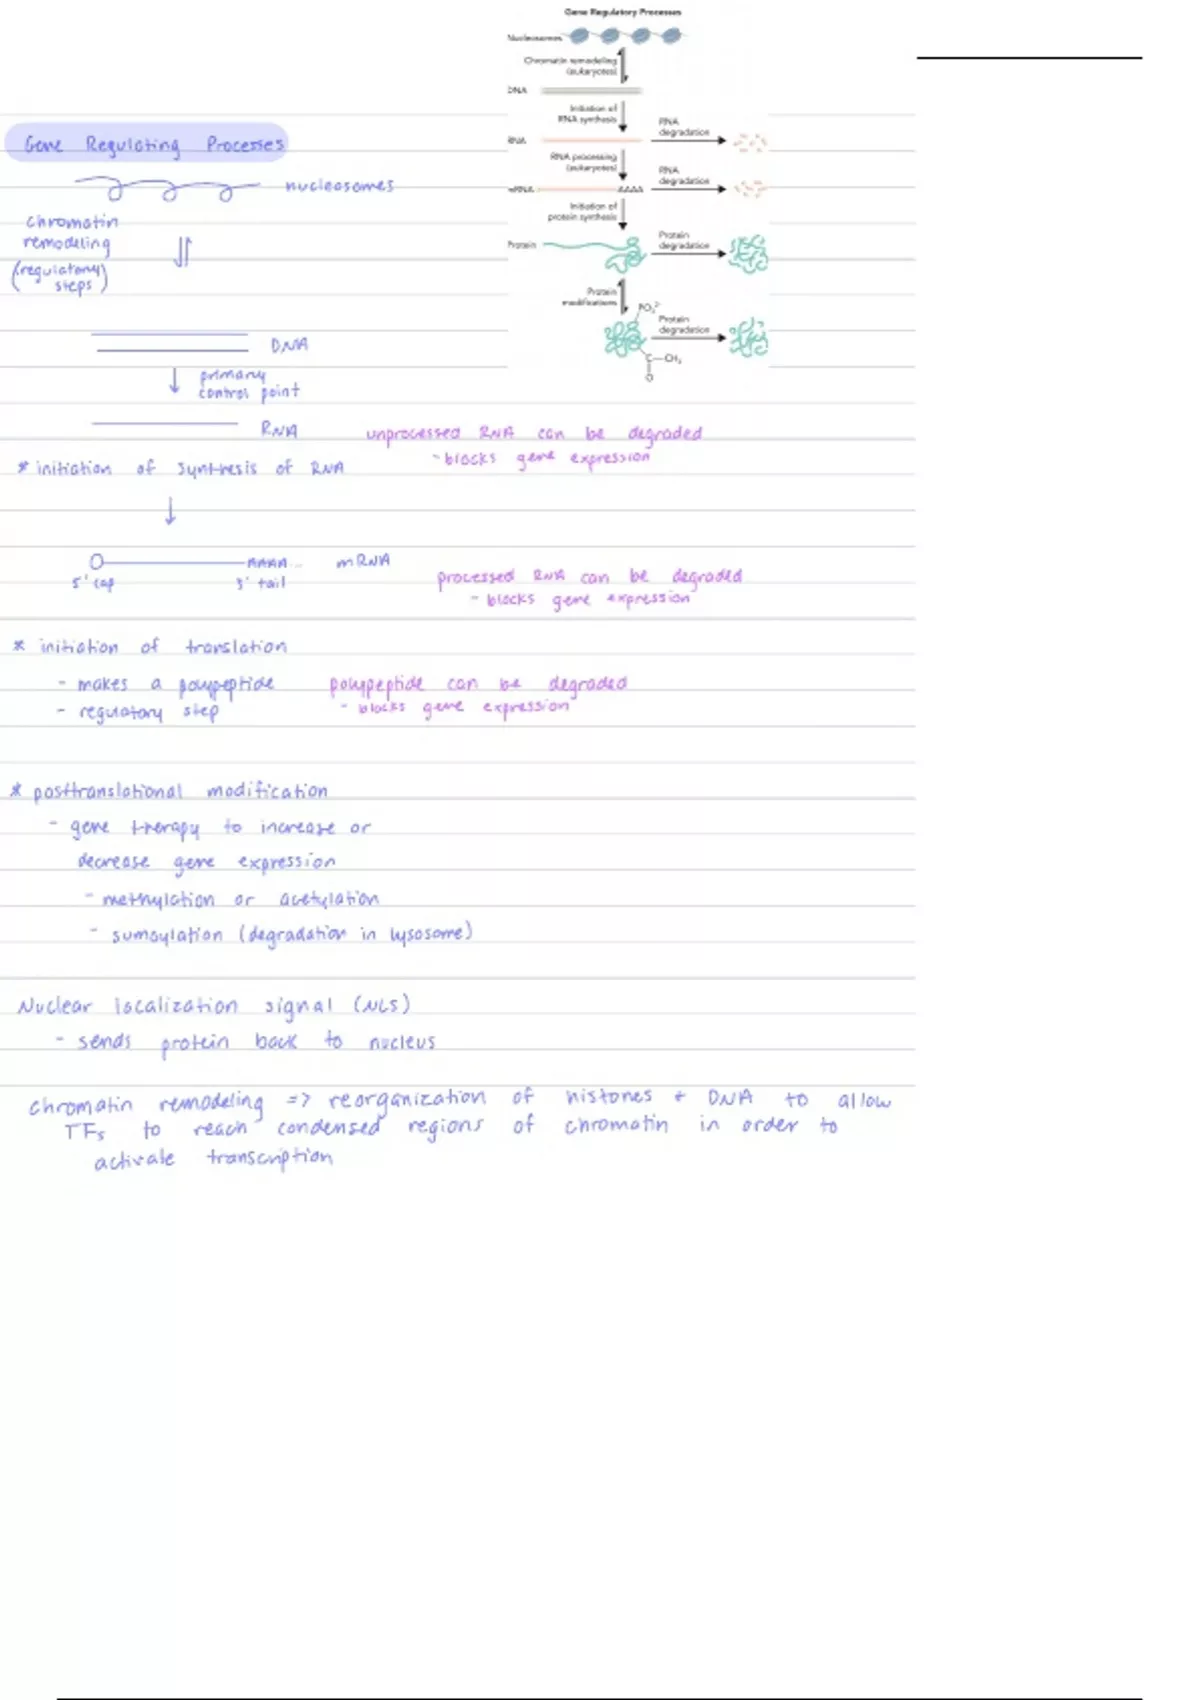 Gene Regulatory Processes
Nucleosomes
Chromatin remodeling
(eukaryotes)
DNA
Initiation of
RNA synthesis
RNA
RNA
degradation
RNA processing
(eukaryotes)
RNA
degradation
mRNA
AAAA
Initiation of
protein synthesis
Protein
Protein
degradation
Protein
modifications
PO₃²⁻
Protein
degradation
C—CH₃
O
Gene Regulating Processes
nucleosomes
chromatin
remodeling
(regulatory)
steps
DNA
primary
control point
RNA
unprocessed RNA can be degraded
- blocks gene expression
* initiation of synthesis of RNA
AAAA... mRNA
5' cap 3' tail
processed RNA can be degraded
- blocks gene expression
* initiation of translation
- makes a polypeptide polypeptide can be degraded
- regulatory step - blocks gene expression
* posttranslational modification
- gene therapy to increase or
decrease gene expression
- methylation or acetylation
- sumoylation (degradation in lysosome)
Nuclear localization signal (NLS)
- sends protein back to nucleus
chromatin remodeling => reorganization of histones + DNA to allow
TFs to reach condensed regions of chromatin in order to
activate transcription